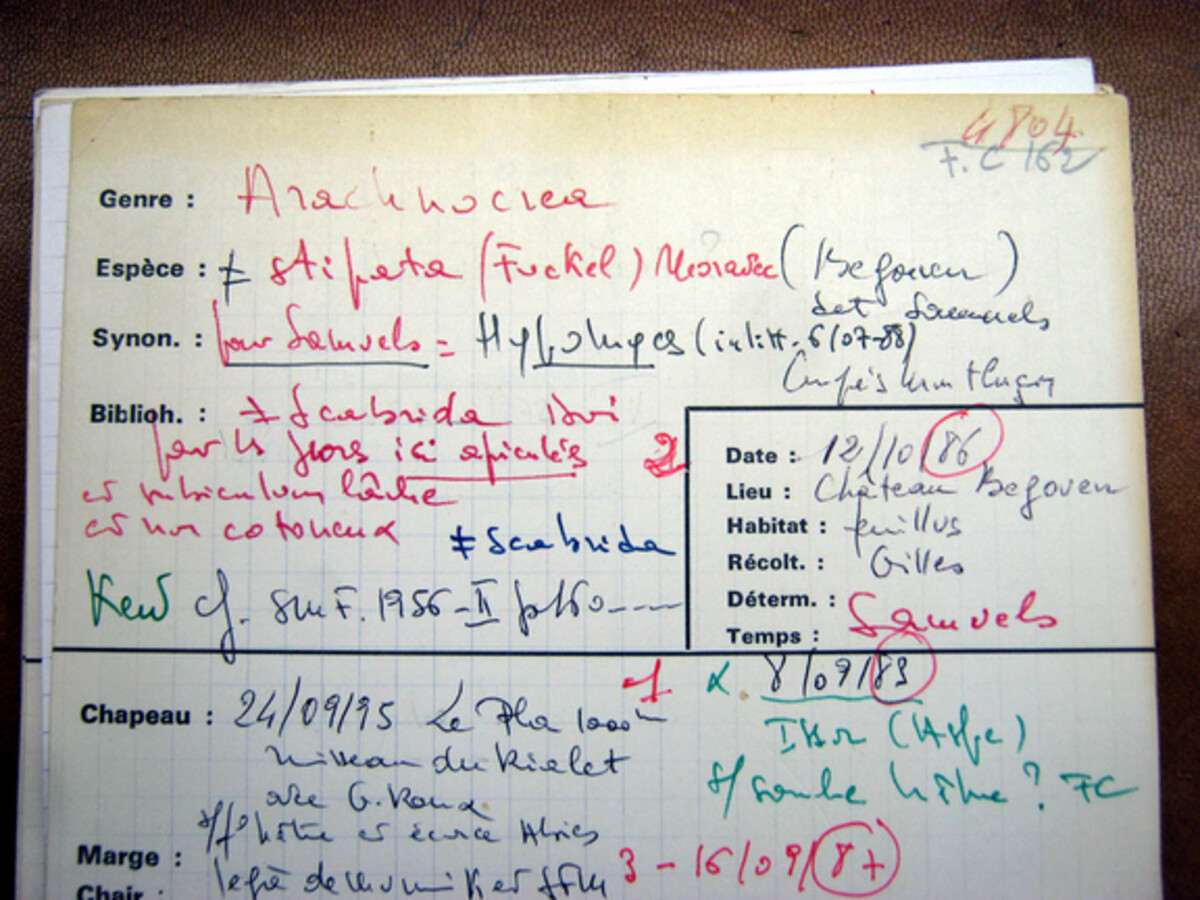 4804
F.C 162
Genre : Arachnocrea
Espèce : ≠ stipata (Fuckel) Moravec (Begouen)
det Samuels
Synon. : pour Samuels = Hypomyces (in litt. 6/07-88)
Biblioh. : ≠ Scabrida
par les spores ici apiculées
et subiculum lâche
et non cotoneux ≠ Scabrida
Kew cf. SMF. 1956-II p160----
2
Date : 12/10/86
Lieu : Château Begouen
Habitat : feuillus
Récolt. : Gilles
Déterm. : Samuels
Temps :
1 8/09/83
s/ souche hêtre ? FC
Chapeau : 24/09/95 Le Pla 1000m
niveau du Rialet
avec G. Roux
s/ hêtre et écorce Abies
Marge :
3 - 16/09/87
Chair :